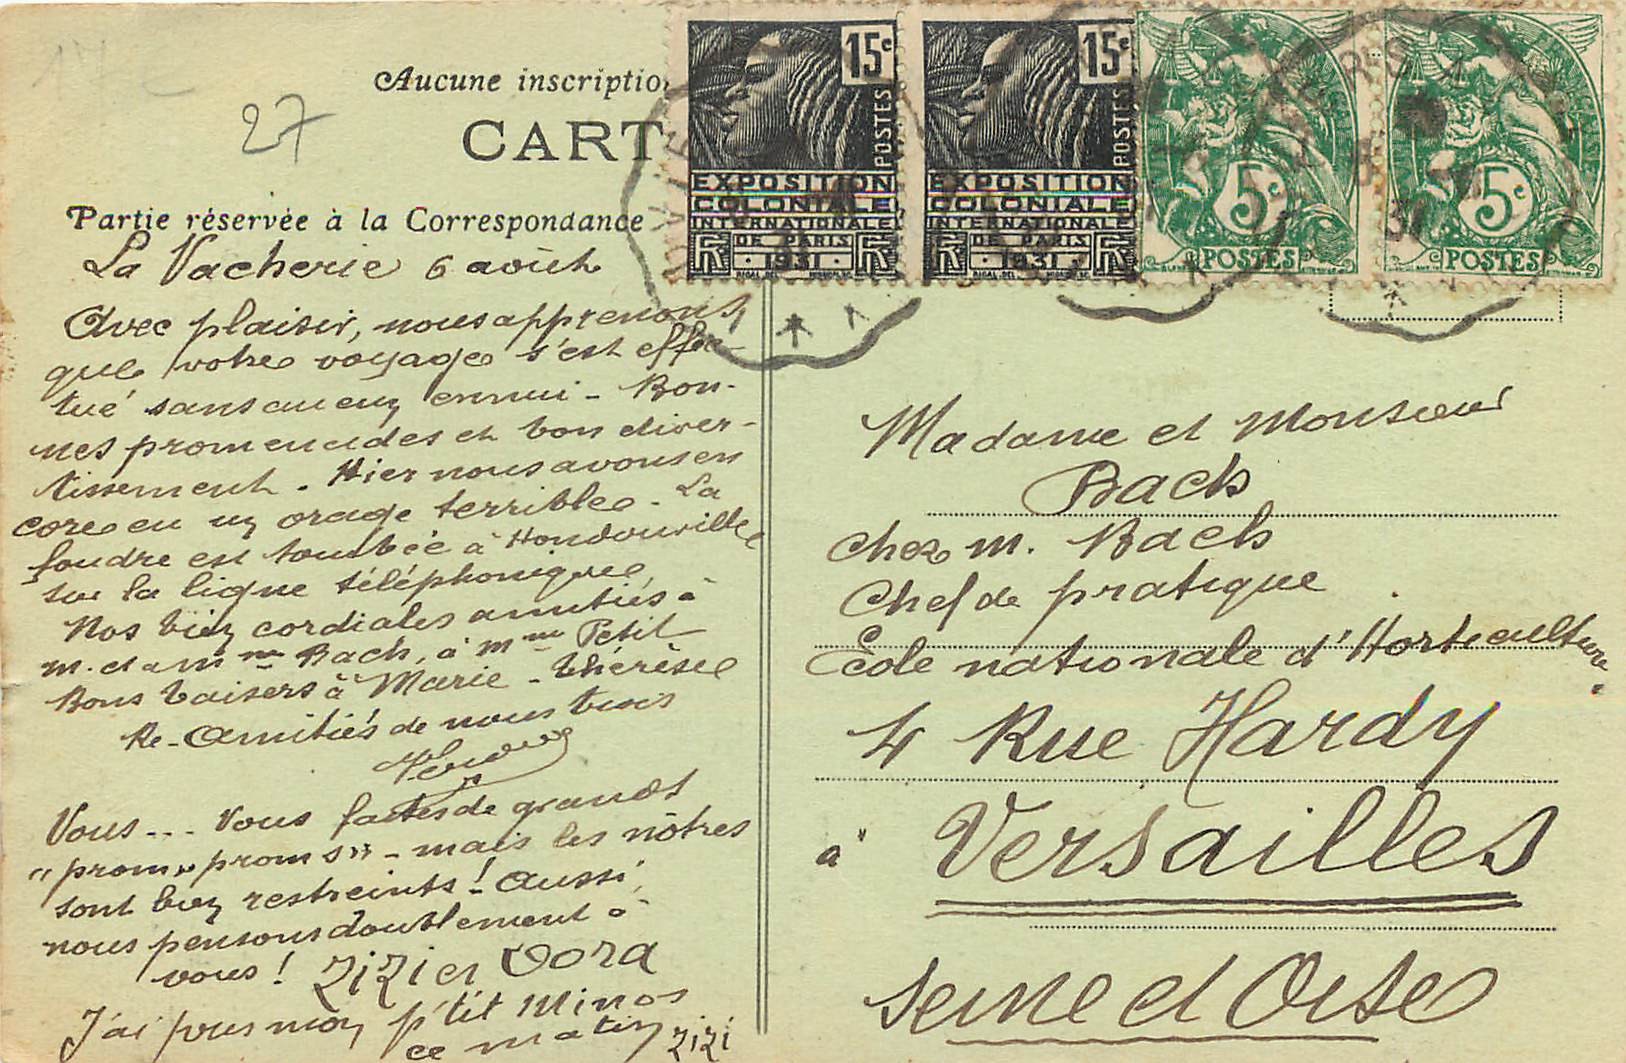 27
Aucune inscription
CART
Partie réservée à la Correspondance
La Vacherie 6 août
Avec plaisir, nous apprenons
que votre voyage s'est effec-
tué sans aucun ennui - Bon-
nes promenades et bon diver-
tissement. Hier nous avons en
core eu un orage terrible - La
foudre est tombée à Hondouville
sur la ligne téléphonique
Nos bien cordiales amitiés à
M. et à Mme Bach, à Mme Petit
Bons baisers à Marie-Thérèse
Re-Amitiés de nous trois
Vous... Vous faites de grandes
"prom" proms" - mais les nôtres
sont bien restreints! Aussi,
nous pensons doublement à
vous! Zizi et Dora
J'ai pour mon p'tit Minos
ce matin Zizi
15c
POSTES
EXPOSITION
COLONIALE
INTERNATIONALE
DE PARIS
1931
RF
15c
POSTES
EXPOSITION
COLONIALE
INTERNATIONALE
DE PARIS
1931
RF
5c
POSTES
5c
POSTES
Madame et Monsieur
Bach
Chez M. Bach
Chef de pratique
École nationale d'Horticulture
4 Rue Hardy
à Versailles
Seine et Oise